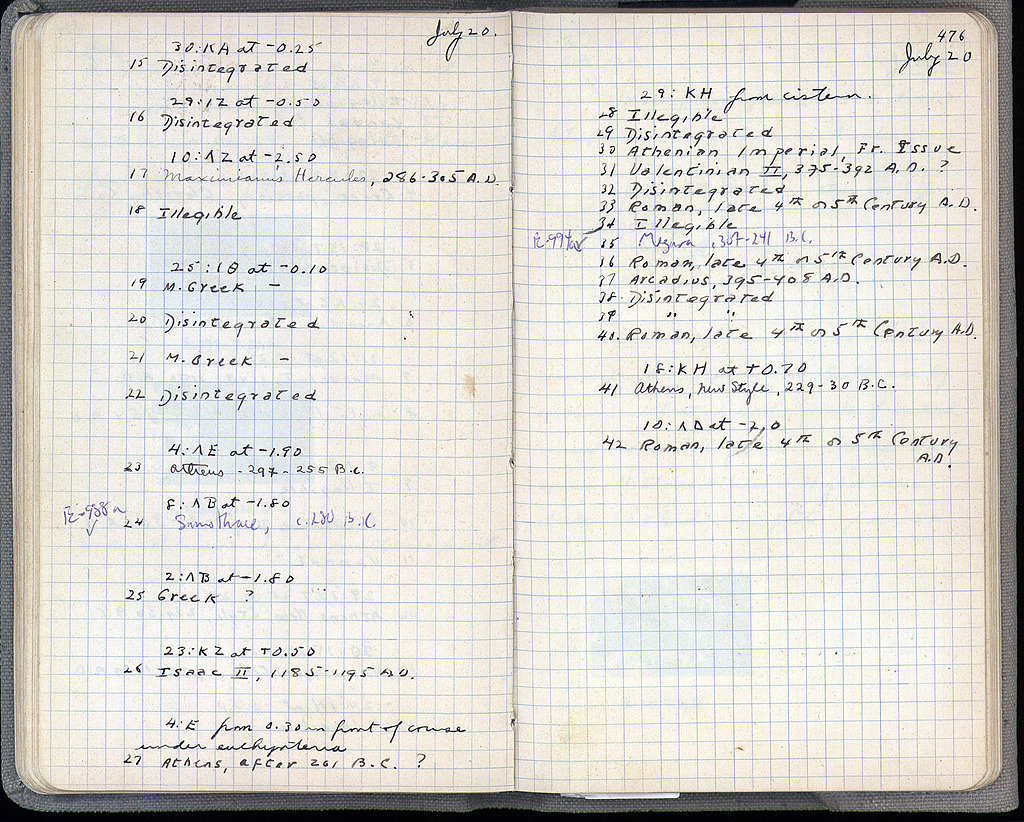 July 20.
30:ΚΛ at -0.25
15 Disintegrated
29:ΙΖ at -0.50
16 Disintegrated
10:ΛΖ at -2.50
17 Maximianus Hercules, 286-305 A.D.
18 Illegible
25:ΙΘ at -0.10
19 M. Greek -
20 Disintegrated
21 M. Greek -
22 Disintegrated
4:ΛΕ at -1.90
23 Athens - 297-255 B.C.
8:ΛΒ at -1.80
24 Samothrace, c. 280 B.C.
2:ΛΒ at -1.80
25 Greek ?
23:ΚΖ at +0.50
26 Isaac II, 1185-1195 A.D.
4:Ε from 0.30 m in front of course
under euthynteria
27 Athens, after 261 B.C. ?
476
July 20
29: ΚΗ from cistern.
28 Illegible
29 Disintegrated
30 Athenian Imperial, Fr. Issue
31 Valentinian II, 375-392 A.D. ?
32 Disintegrated
33 Roman, late 4th or 5th Century A.D.
34 Illegible
35 Megara, 307-241 B.C.
36 Roman, late 4th or 5th Century A.D.
37 Arcadius, 395-408 A.D.
38 Disintegrated
39 " "
40. Roman, late 4th or 5th Century A.D.
18:ΚΗ at +0.70
41 Athens, New Style, 229-30 B.C.
10:ΛΔ at -2.0
42 Roman, late 4th or 5th Century
A.D.